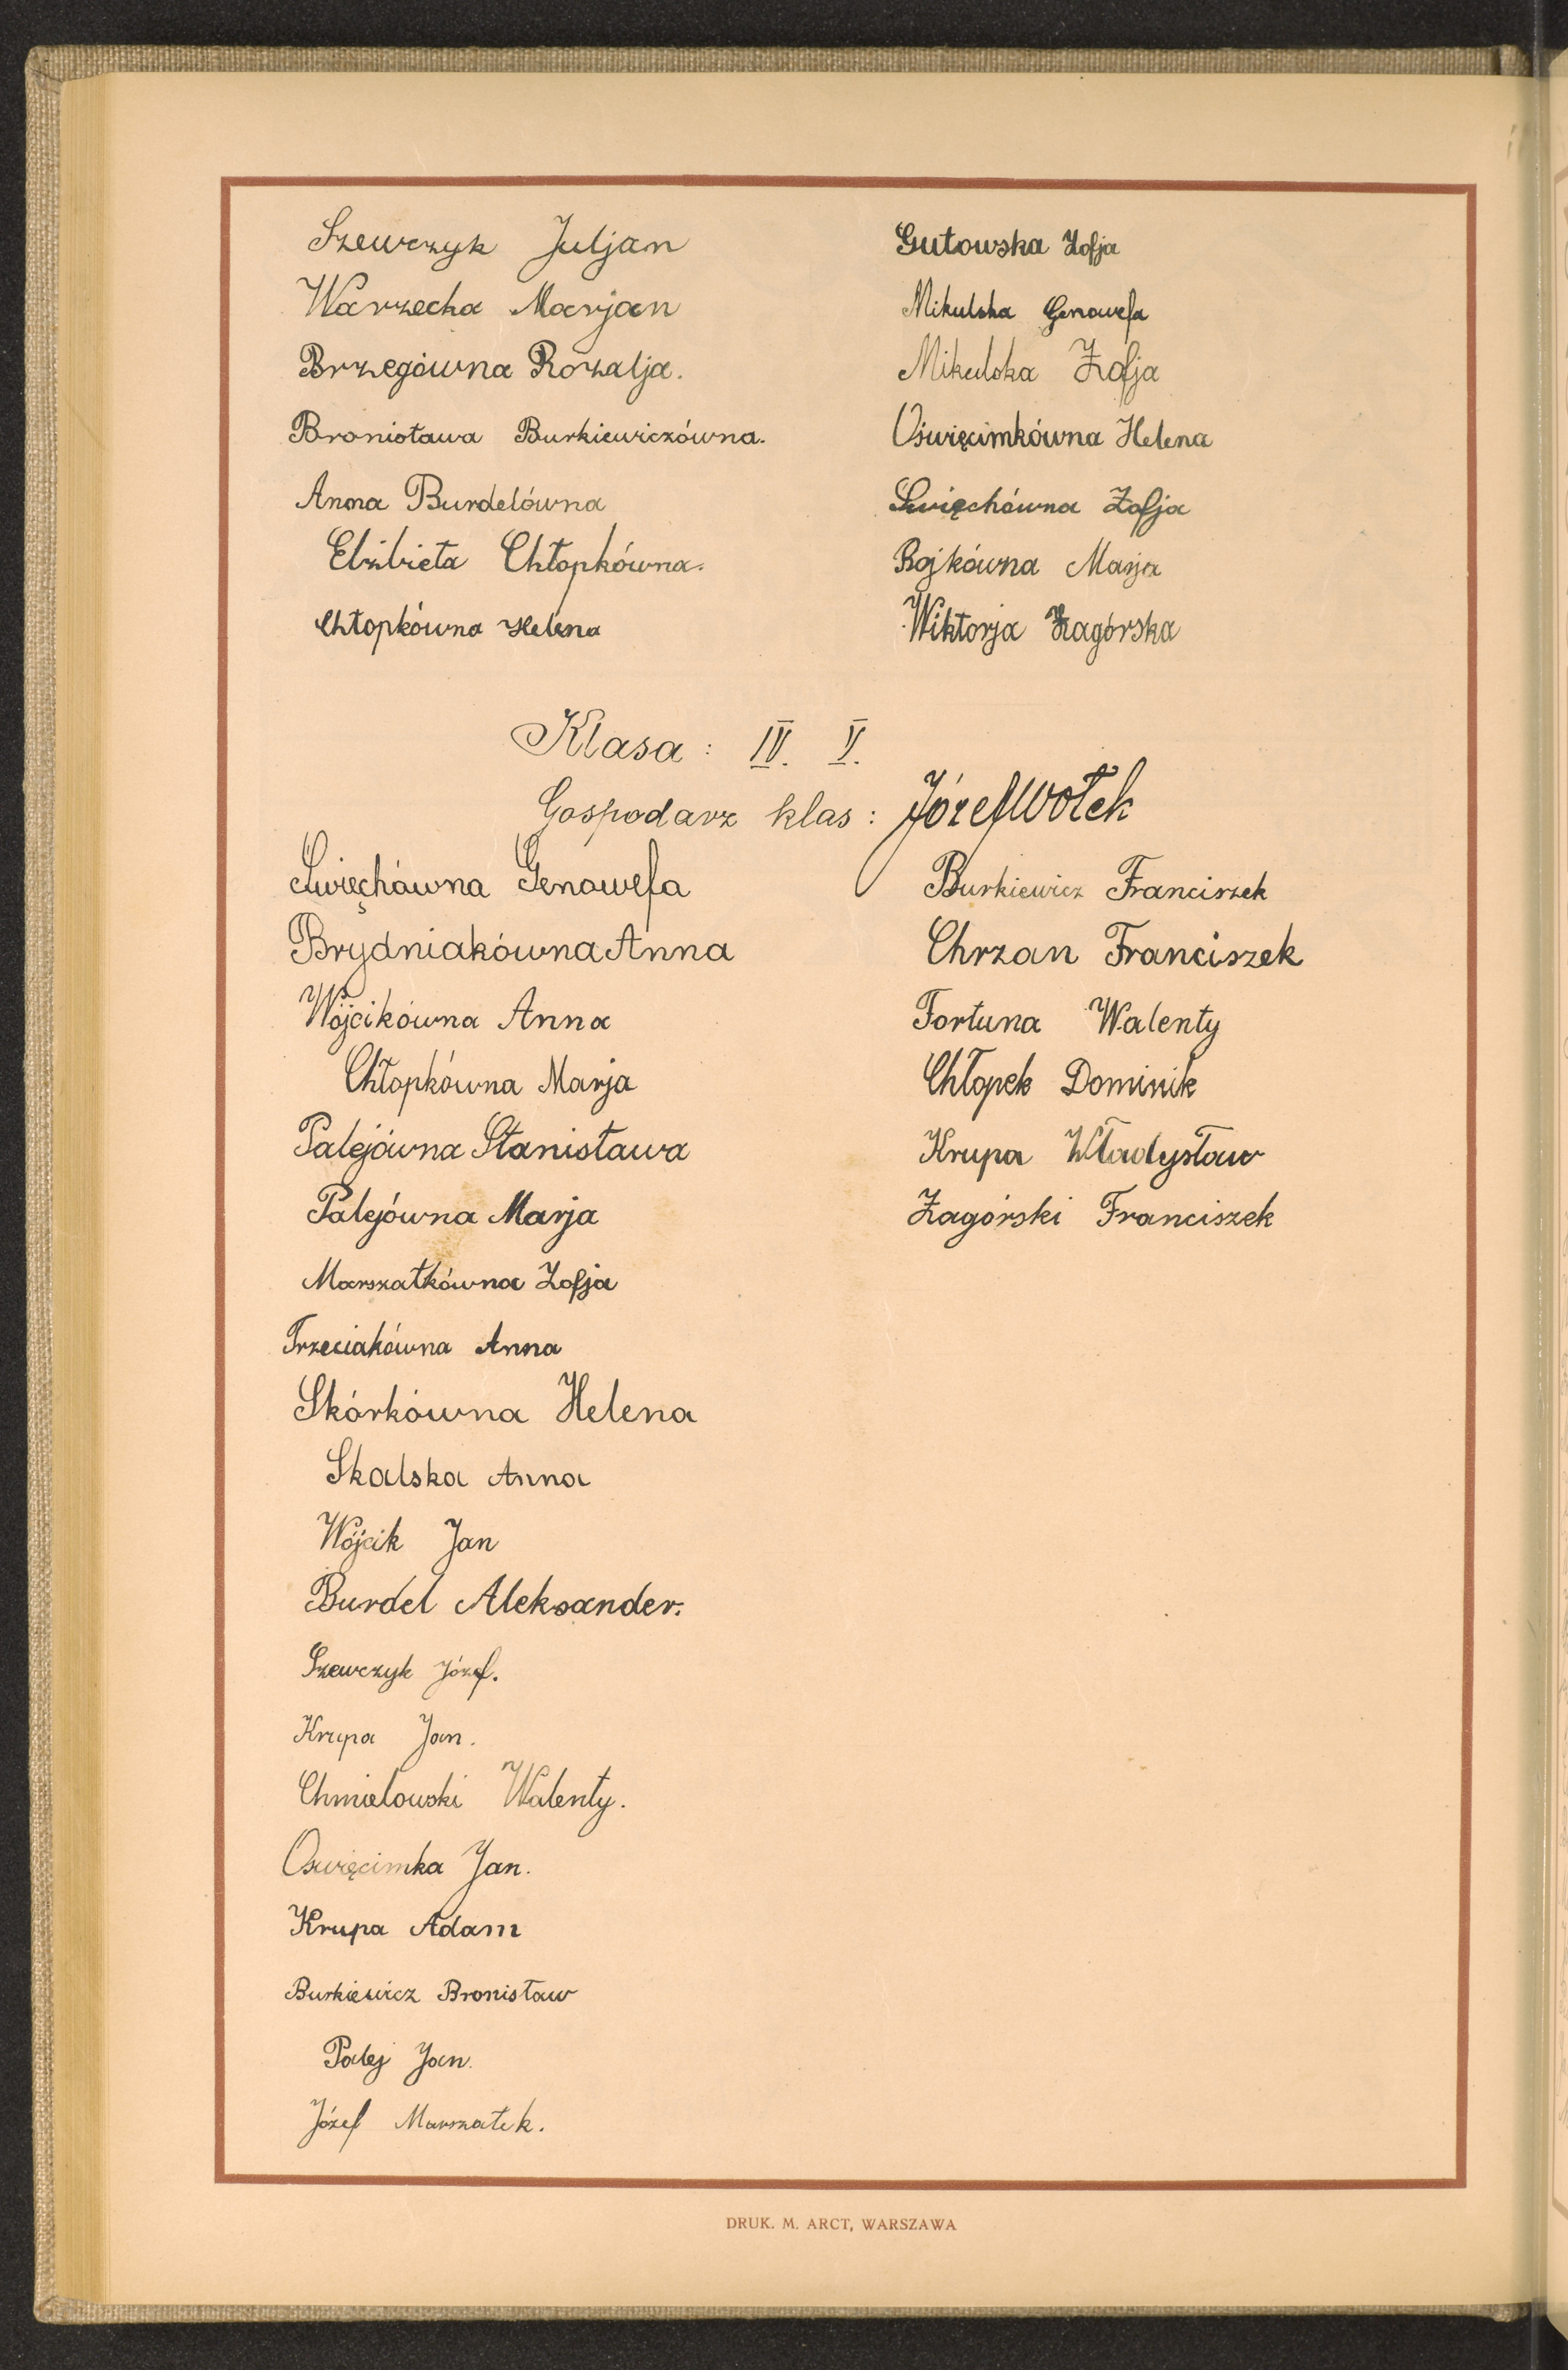 Szewczyk Juljan
Warzecha Marjan
Brzegówna Rozalja.
Bronisława Burkiewiczówna.
Anna Burdelówna
Elżbieta Chłopkówna.
Chłopkówna Helena
Gutowska Zofja
Mikulska Genowefa
Mikulska Zofja
Oświęcimkówna Helena
Święchówna Zofja
Rojkówna Marja
Wiktorja Zagórska
Klasa: IV. V.
Gospodarz klas: Józef Wołek
Święchówna Genowefa
Brydniakówna Anna
Wójcikówna Anna
Chłopkówna Marja
Palejówna Stanisława
Palejówna Marja
Marszałkówna Zofja
Trzeciakówna Anna
Skórkówna Helena
Skalska Anna
Wójcik Jan
Burdel Aleksander.
Szewczyk Józef.
Krupa Jan.
Chmielowski Walenty.
Oswięcimka Jan.
Krupa Adam
Burkiewicz Bronisław
Palej Jan.
Józef Marszałek.
Burkiewicz Franciszek
Chrzan Franciszek
Fortuna Walenty
Chłopek Dominik
Krupa Władysław
Zagórski Franciszek
DRUK. M. ARCT, WARSZAWA